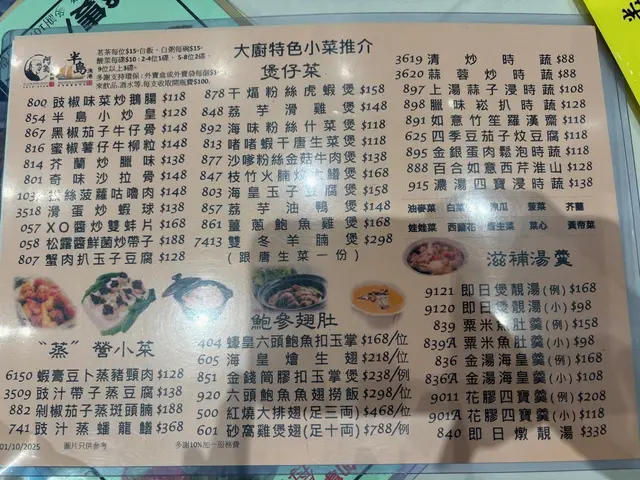 茗茶每位$15 白飯、白粥每碗$15
9位以上3碟
半島
大廚特色小菜推介
800 豉椒味菜炒鵝腸 $118
854 半島小炒皇 $128
867 黑椒茄子牛仔骨 $148
816 蜜椒薯仔牛柳粒 $148
814 芥蘭炒臘味 $138
801 奇味沙拉骨 $148
菠蘿咕嚕肉 $148
3518 滑蛋炒蝦球 $138
057 XO醬炒雙蚌片 $168
058 松露醬鮮菌炒帶子 $188
807 蟹肉扒玉子豆腐 $128
煲仔菜
878 干煏粉絲虎蝦煲 $158
848 荔芋滑雞煲 $148
892 海味粉絲什菜煲 $118
813 啫啫蝦干唐生菜煲 $118
877 沙嗲粉絲金菇牛肉煲 $138
847 枝竹火腩炆大鱔煲 $168
803 海皇玉子豆腐煲 $158
857 荔芋油鴨煲 $148
861 薑蔥鮑魚雞煲 $168
7413 雙冬羊腩煲 $298
(跟唐生菜一份)
3619 清炒時蔬 $88
3620 蒜蓉炒時蔬 $88
897 上湯蒜子浸時蔬 $108
898 臘味崧扒時蔬 $128
891 如意竹笙羅漢齋 $118
625 四季豆茄子炆豆腐 $118
895 金銀蛋肉鬆泡時蔬 $118
888 百合如意西芹淮山 $128
915 濃湯四寶浸時蔬 $138
油麥菜 白菜 瓜 菠菜 芥蘭
娃娃菜 西蘭花 生菜 菜心 黃帝菜
滋補湯羹
9121 即日煲靚湯(例) $168
9120 即日煲靚湯(小) $98
839 粟米魚肚羹(例) $158
839A 粟米魚肚羹(小) $98
836 金湯海皇羹(例) $168
836A 金湯海皇羹(小) $108
9011 花膠四寶羹(例) $208
901A 花膠四寶羹(小) $118
840 即日燉靚湯 $338
"蒸"營小菜
6150 蝦膏豆卜蒸豬頸肉 $128
3509 豉汁帶子蒸豆腐 $138
882 剁椒茄子蒸斑頭腩 $188
741 豉汁蒸蟠龍鱔 $368
鮑參翅肚
404 蠔皇六頭鮑魚扣玉掌 $168/位
605 海皇燴生翅 $218/位
851 金錢筒膠扣玉掌煲 $238/例
920 六頭鮑魚魚翅撈飯 $298/位
500 紅燒大排翅(足三両) $468/位
601 砂窩雞煲翅(足十両) $788/例
01/10/2025 圖片只供參考 多謝10%加一服務費